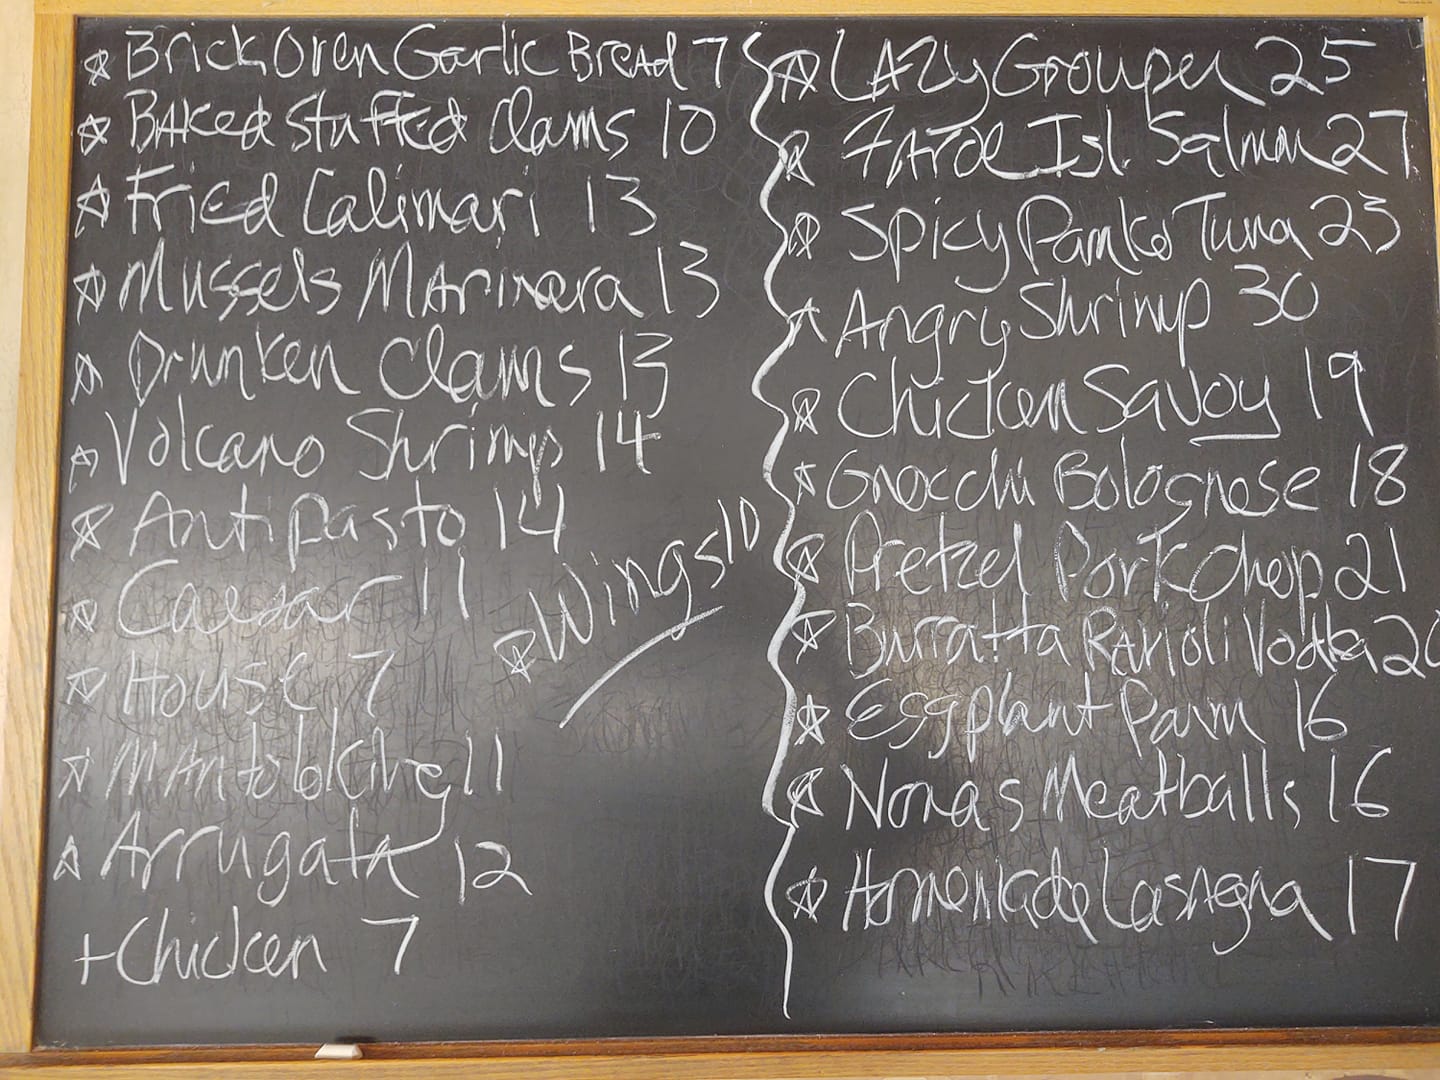 Brick Oven Garlic Bread 7
Baked Stuffed Clams 10
Fried Calimari 13
Mussels Marinara 13
Drunken Clams 13
Volcano Shrimp 14
Antipasto 14
Caesar 11
House 7
Mantoloking 11
Arrugata 12
+Chicken 7
Wings 10
Lazy Grouper 25
Faroe Isl. Salmon 27
Spicy Panko Tuna 23
Angry Shrimp 30
Chicken Savoy 19
Gnocchi Bolognese 18
Pretzel Pork Chop 21
Burratta Ravioli Vodka
Eggplant Parm 16
Nona's Meatballs 16
Homemade Lasagna 17